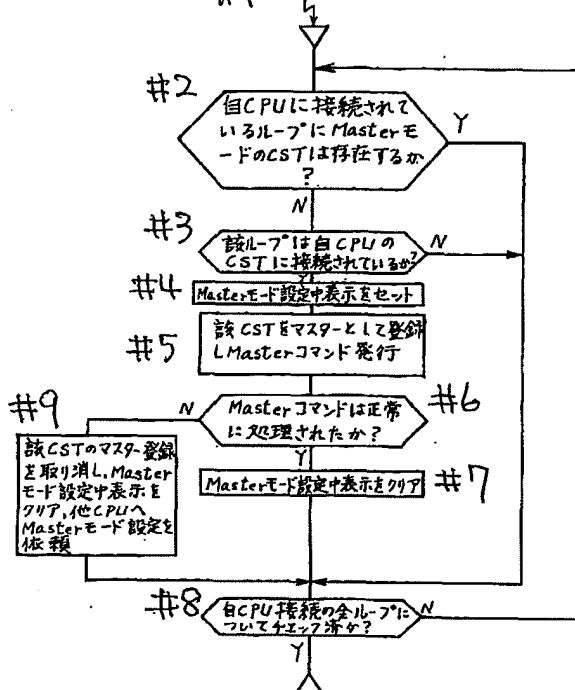 #2
自CPUに接続されて
いるループにMasterモ
ードのCSTは存在するか
?
Y
N
#3
該ループは自CPUの
CSTに接続されているか?
N
Y
#4
Masterモード設定中表示をセット
#5
該CSTをマスターとして登録
しMasterコマンド発行
#6
Masterコマンドは正常
に処理されたか?
N
Y
#9
該CSTのマスター登録
を取り消し,Master
モード設定中表示を
クリア,他CPUへ
Masterモード設定を
依頼
#7
Masterモード設定中表示をクリア
#8
自CPU接続の全ループに
ついてチェック済か?
N
Y